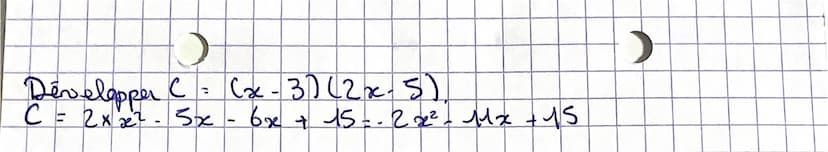 Développer C = (x - 3)(2x - 5).
C = 2 × x² - 5x - 6x + 15 = 2x² - 11x + 15